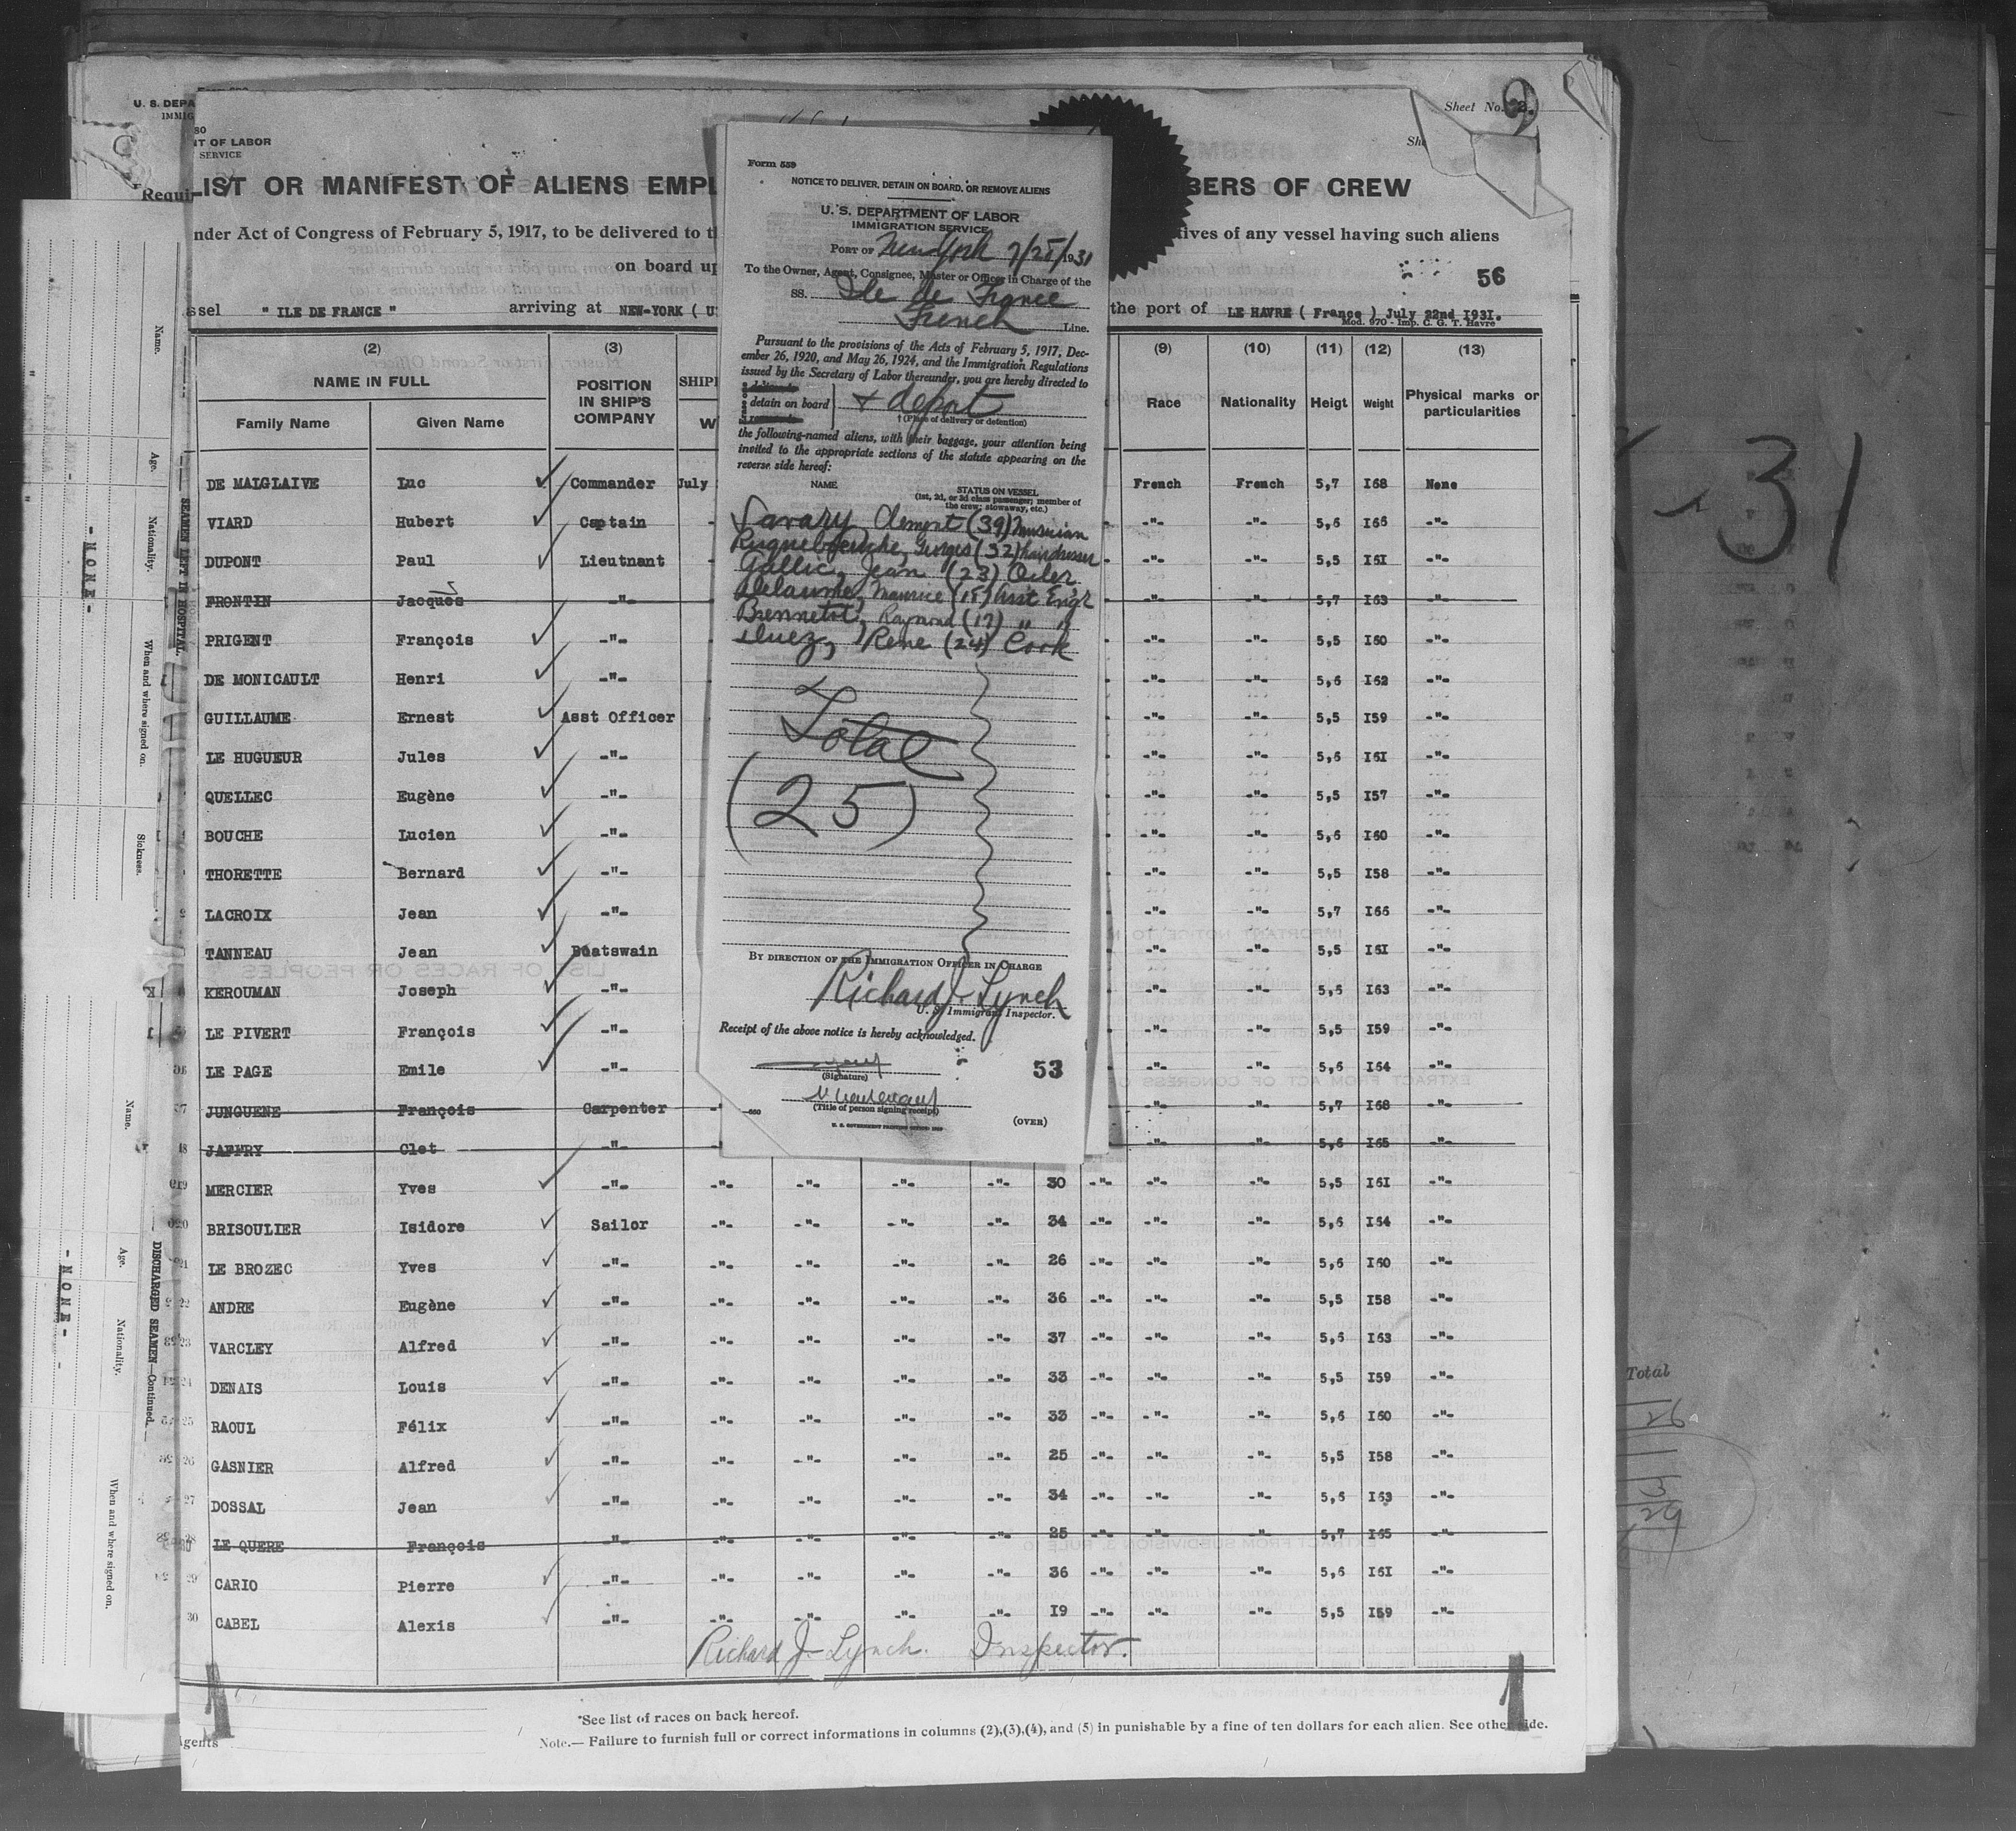 Sheet No. 2.
U. S. DEPA
T OF LABOR
SERVICE
Requi
LIST OR MANIFEST OF ALIENS EMPL
BERS OF CREW
nder Act of Congress of February 5, 1917, to be delivered to t
tives of any vessel having such aliens
on board up
56
ssel " ILE DE FRANCE " arriving at NEW-YORK ( U
the port of LE HAVRE ( France ) July 22nd 1931.
Mod. 970 - Imp. C. G. T. Havre
(2) (3) (9) (10) (11) (12) (13)
NAME IN FULL
POSITION IN SHIP'S COMPANY
SHIP
Family Name Given Name W Race Nationality Heigt Weight Physical marks or particularities
DE MALGLAIVE Luc Commander July French French 5,7 I68 None
VIARD Hubert Captain - -"- -"- 5,6 I66 -"-
DUPONT Paul Lieutnant - -"- -"- 5,5 I6I -"-
FRONTIN Jacques -"- -"- -"- 5,7 I63 -"-
PRIGENT François -"- -"- -"- 5,5 I60 -"-
DE MONICAULT Henri -"- -"- -"- 5,6 I62 -"-
GUILLAUME Ernest Asst Officer -"- -"- 5,5 I59 -"-
LE HUGUEUR Jules -"- -"- -"- 5,6 I6I -"-
QUELLEC Eugène -"- -"- -"- 5,5 I57 -"-
BOUCHE Lucien -"- -"- -"- 5,6 I60 -"-
THORETTE Bernard -"- -"- -"- 5,5 I58 -"-
LACROIX Jean -"- -"- -"- 5,7 I66 -"-
TANNEAU Jean Boatswain -"- -"- 5,5 I6I -"-
KEROUMAN Joseph -"- -"- -"- 5,6 I63 -"-
LE PIVERT François -"- -"- -"- 5,5 I59 -"-
LE PAGE Emile -"- -"- -"- 5,6 I64 -"-
JUNGUENE François Carpenter -"- -"- 5,7 I68 -"-
JAFFRY Clet -"- -"- -"- 5,6 I65 -"-
MERCIER Yves -"- -"- -"- -"- -"- 30 -"- -"- -"- 5,5 I6I -"-
20 BRISOULIER Isidore Sailor -"- -"- -"- -"- 34 -"- -"- -"- 5,6 I64 -"-
21 LE BROZEC Yves -"- -"- -"- -"- -"- 26 -"- -"- -"- 5,6 I60 -"-
22 ANDRE Eugène -"- -"- -"- -"- -"- 36 -"- -"- -"- 5,5 I58 -"-
23 VARCLEY Alfred -"- -"- -"- -"- -"- 37 -"- -"- -"- 5,6 I63 -"-
24 DENAIS Louis -"- -"- -"- -"- -"- 33 -"- -"- -"- 5,5 I59 -"-
25 RAOUL Félix -"- -"- -"- -"- -"- 33 -"- -"- -"- 5,6 I60 -"-
26 GASNIER Alfred -"- -"- -"- -"- -"- 25 -"- -"- -"- 5,5 I58 -"-
27 DOSSAL Jean -"- -"- -"- -"- -"- 34 -"- -"- -"- 5,6 I63 -"-
28 LE QUERE François -"- -"- -"- -"- -"- 25 -"- -"- -"- 5,7 I65 -"-
29 CARIO Pierre -"- -"- -"- -"- -"- 36 -"- -"- -"- 5,6 I6I -"-
30 CABEL Alexis -"- -"- -"- -"- -"- I9 -"- -"- -"- 5,5 I59 -"-
Richard J. Lynch. Inspector.
*See list of races on back hereof.
Note.— Failure to furnish full or correct informations in columns (2),(3),(4), and (5) in punishable by a fine of ten dollars for each alien. See other side.
Agents
Form 559
NOTICE TO DELIVER, DETAIN ON BOARD, OR REMOVE ALIENS
U. S. DEPARTMENT OF LABOR
IMMIGRATION SERVICE
PORT OF New York 7/28/1931
To the Owner, Agent, Consignee, Master or Officer in Charge of the
SS. Ile de France
French Line.
Pursuant to the provisions of the Acts of February 5, 1917, Dec-
ember 26, 1920, and May 26, 1924, and the Immigration Regulations
issued by the Secretary of Labor thereunder, you are hereby directed to
detain on board + deport
† (Place of delivery or detention)
the following-named aliens, with their baggage, your attention being
invited to the appropriate sections of the statute appearing on the
reverse side hereof:
NAME
STATUS ON VESSEL
(1st, 2d, or 3d class passenger; member of
the crew; stowaway, etc.)
Savary, Clement (39) Musician
Georges (32) hairdresser
Gallic, Jean (23) Oiler
Delaume, Maurice (15) Asst Eng'r
Bennetot, Raymond (17) " "
Duez, Rene (24) Cook
Total
(25)
BY DIRECTION OF THE IMMIGRATION OFFICER IN CHARGE
Richard J. Lynch
U. S. Immigrant Inspector.
Receipt of the above notice is hereby acknowledged.
(Signature)
53
(Title of person signing receipt)
(OVER)
U. S. GOVERNMENT PRINTING OFFICE
Name.
Age.
Nationality.
When and where signed on.
Sickness.
SEAMEN LEFT IN HOSPITAL.
- NONE -
Name.
Age.
Nationality.
When and where signed on.
DISCHARGED SEAMEN—Continued.
- NONE -
31
Total
26
3
29